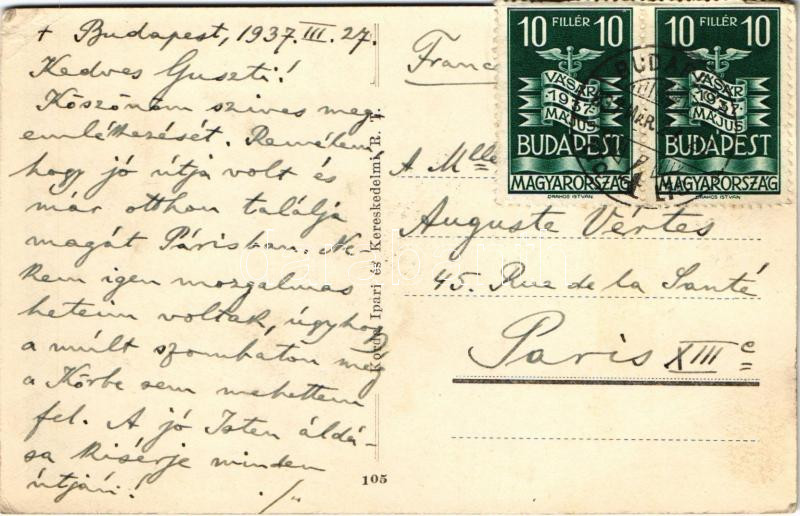 + Budapest, 1937. III. 27.
Kedves Guszti!
Köszönöm szives meg-
emlékezését. Remélem,
hogy jó útja volt és
már otthon találja
magát Párisban. Ne-
kem igen mozgalmas
heteim voltak, úgyhogy
a múlt szombaton még
a Körbe sem mehettem
fel. A jó Isten áldá-
sa kisérje minden
útján!
./..
Korda Ipari és Kereskedelmi R. T.
105
Franc
10 FILLÉR 10
VÁSÁR
1937
MÁJUS
BUDAPEST
MAGYARORSZÁG
DRAHOS ISTVÁN
10 FILLÉR 10
VÁSÁR
1937
MÁJUS
BUDAPEST
MAGYARORSZÁG
DRAHOS ISTVÁN
BUDAP
A Mlle
Auguste Vértes
45. Rue de la Santé
Paris XIIIe